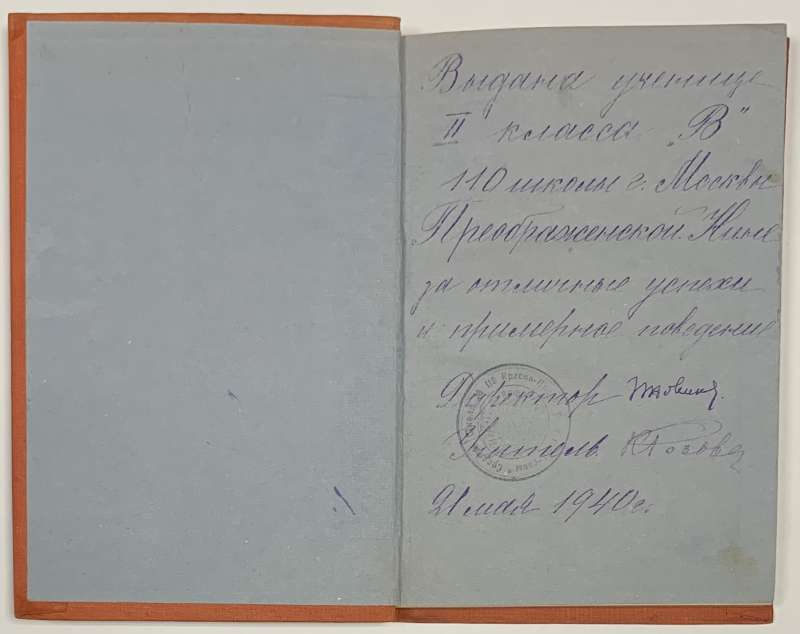 Выдана ученице
II класса „В"
110 школы г. Москвы
Преображенской Нине
за отличные успехи
и примерное поведение
Директор
Учитель К Розова
21 мая 1940 г.